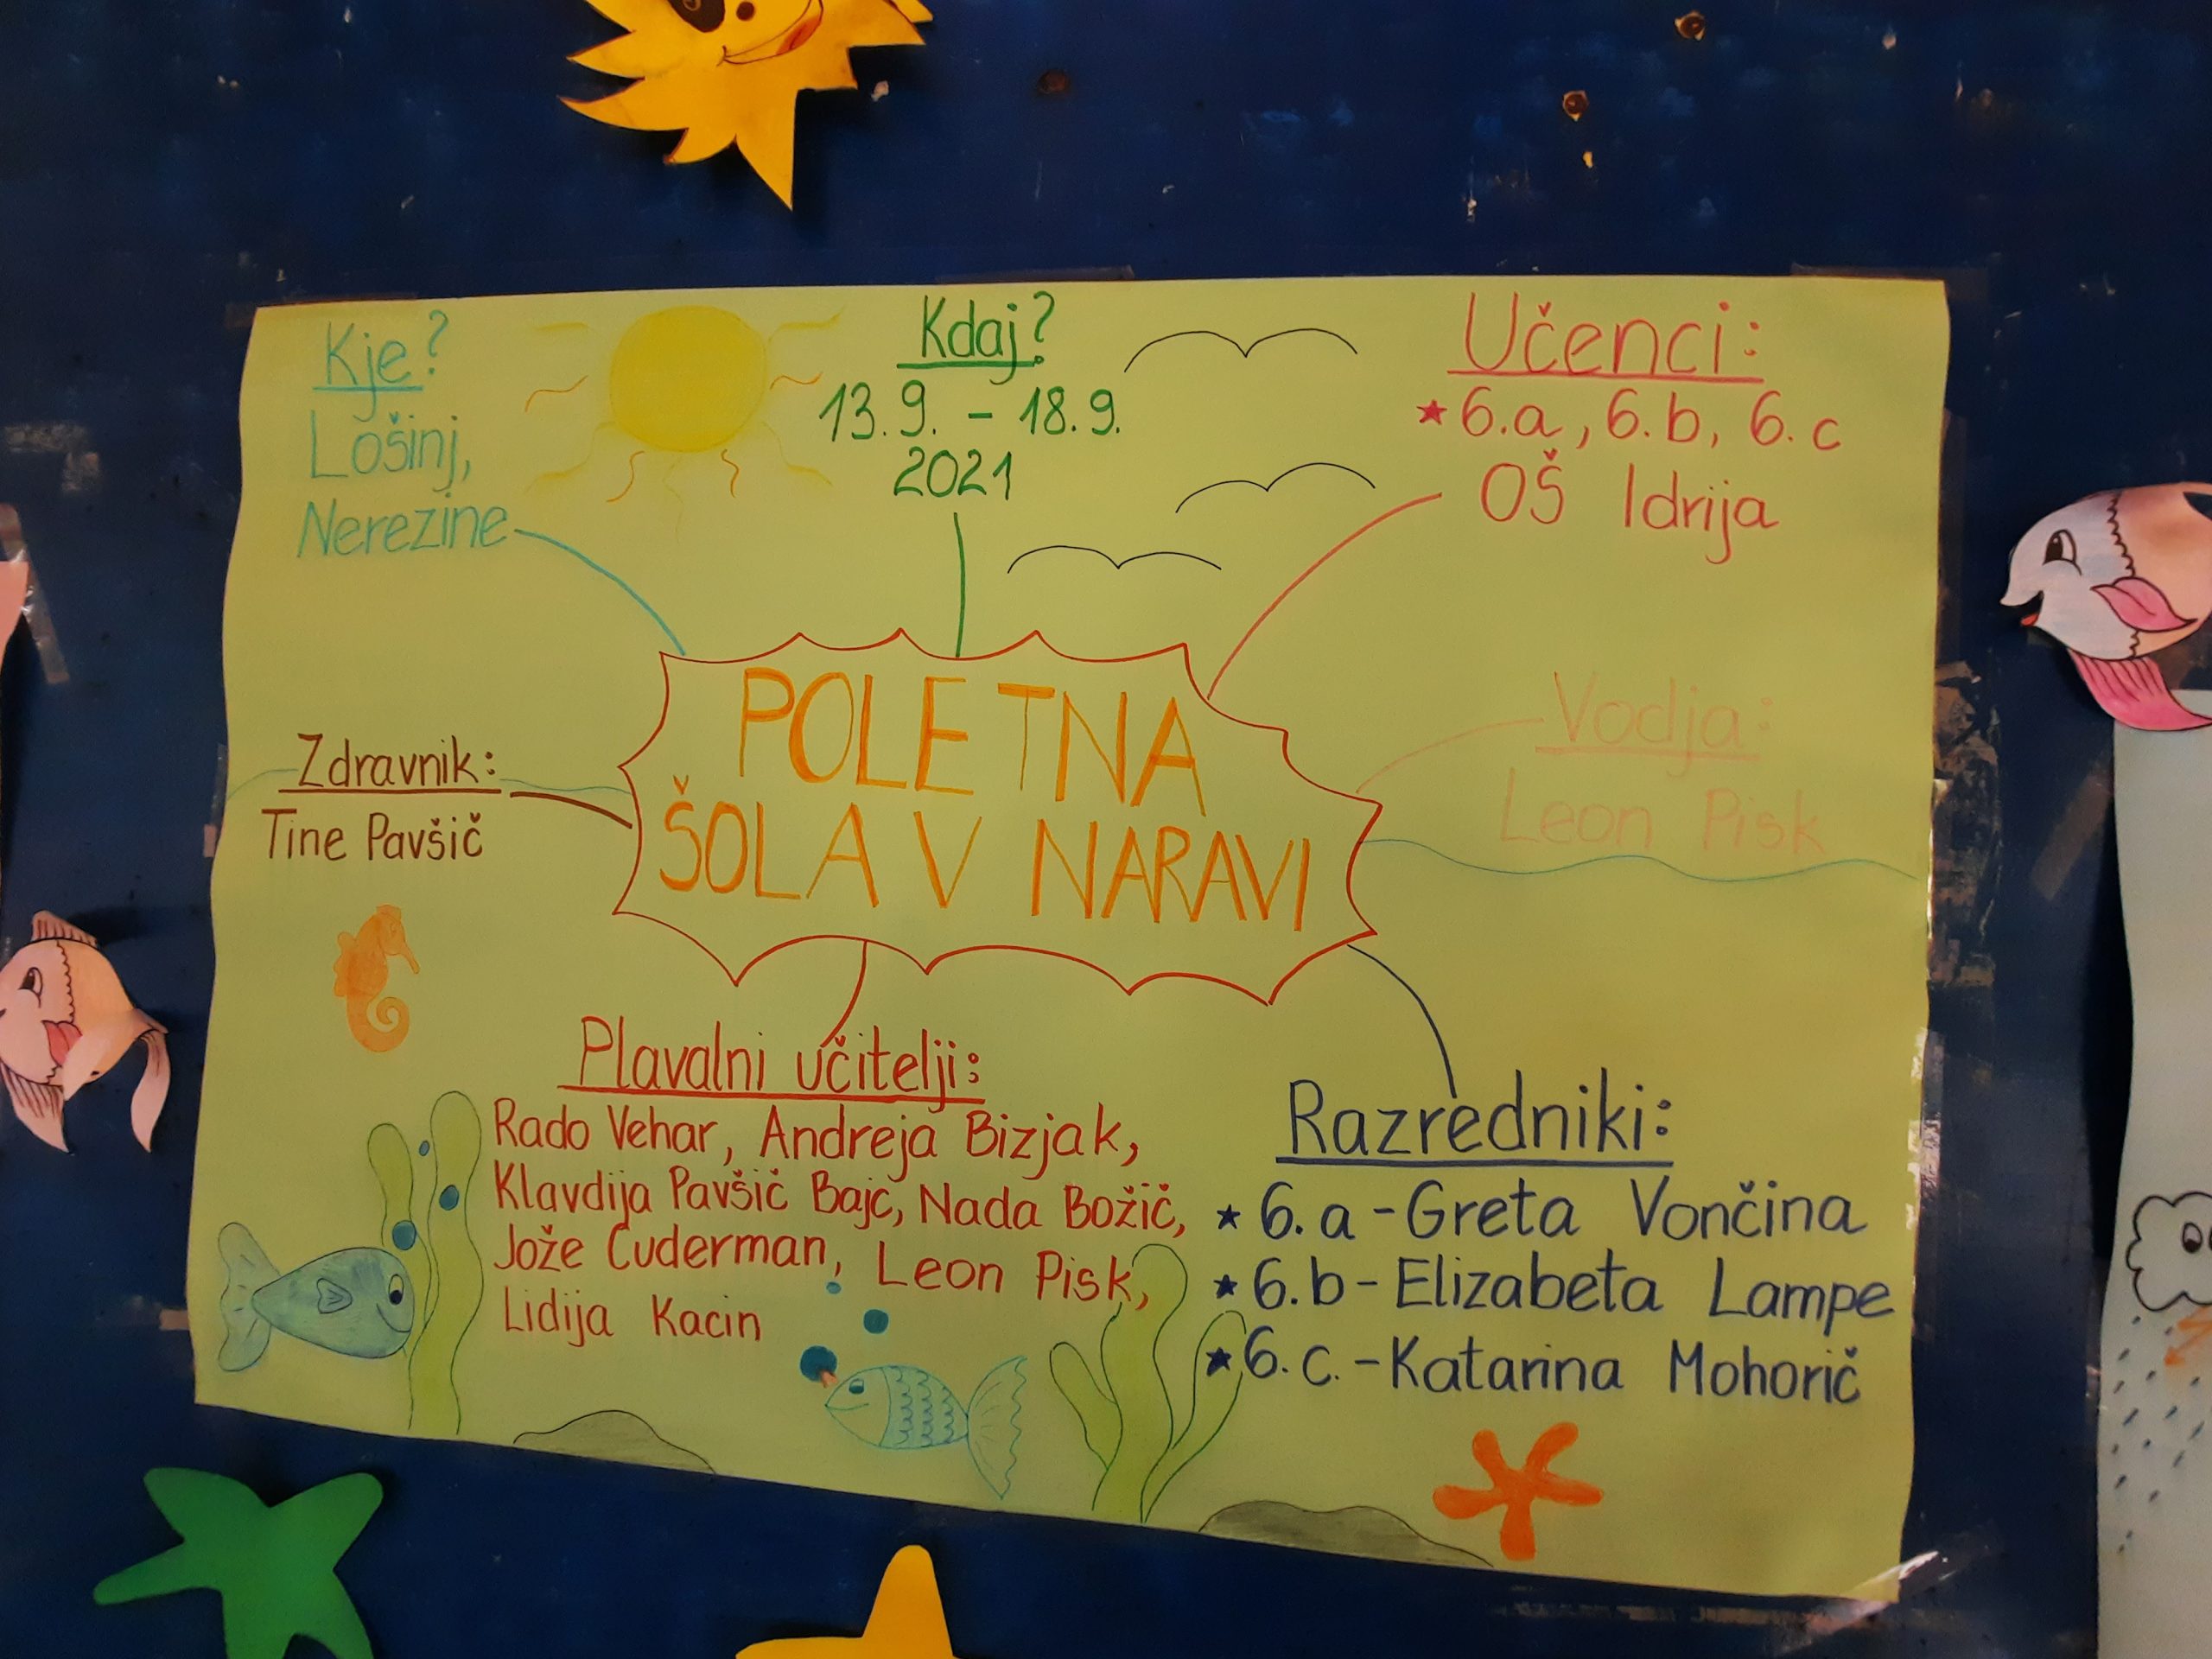 Kje?
Lošinj,
Nerezine
Kdaj?
13.9. - 18.9.
2021
Učenci:
★6.a, 6.b, 6.c
OŠ Idrija
Zdravnik:
Tine Pavšič
POLETNA
ŠOLA V NARAVI
Vodja:
Leon Pisk
Plavalni učitelji:
Rado Vehar, Andreja Bizjak,
Klavdija Pavšič Bajc, Nada Božič,
Jože Čuderman, Leon Pisk,
Lidija Kacin
Razredniki:
★ 6.a - Greta Vončina
★ 6.b - Elizabeta Lampe
★ 6.c. - Katarina Mohorič